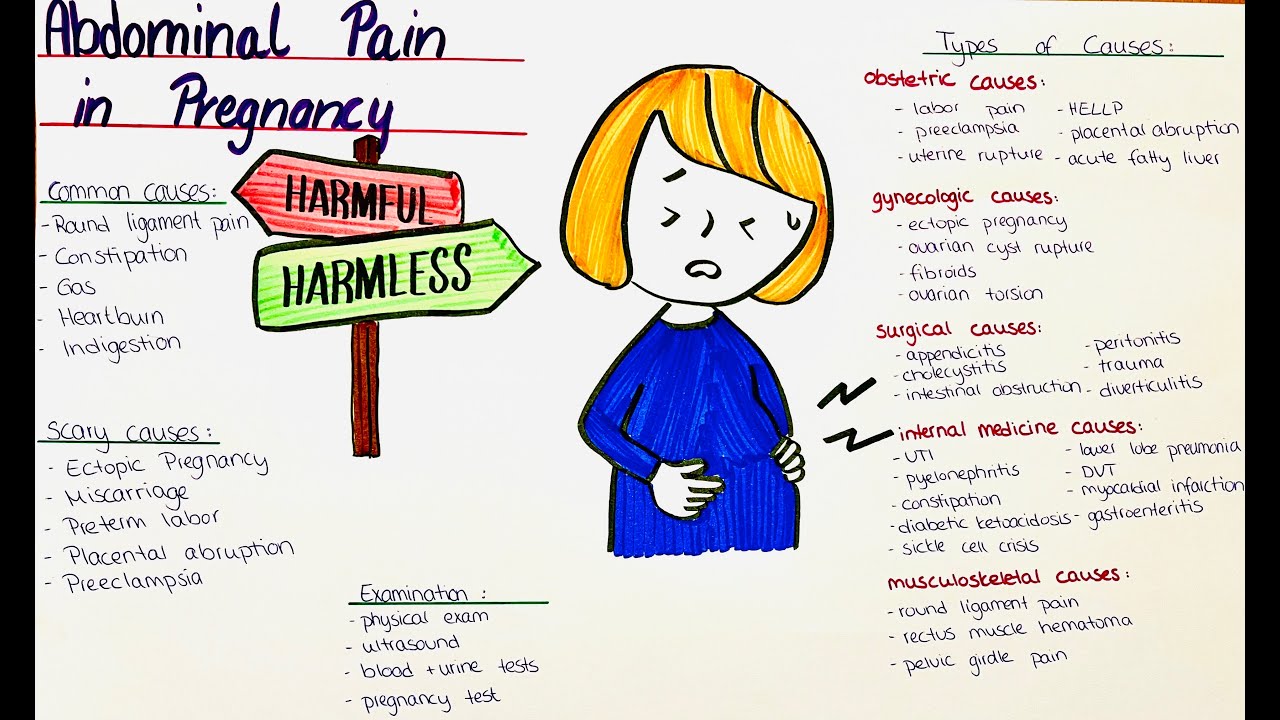 Abdominal Pain
in Pregnancy
HARMFUL
HARMLESS
Common causes:
- Round ligament pain
- Constipation
- Gas
- Heartburn
- Indigestion
Scary causes:
- Ectopic Pregnancy
- Miscarriage
- Preterm labor
- Placental abruption
- Preeclampsia
Examination:
- physical exam
- ultrasound
- blood + urine tests
- pregnancy test
Types of Causes:
obstetric causes:
- labor pain - HELLP
- preeclampsia - placental abruption
- uterine rupture - acute fatty liver
gynecologic causes:
- ectopic pregnancy
- ovarian cyst rupture
- fibroids
- ovarian torsion
surgical causes:
- appendicitis - peritonitis
- cholecystitis - trauma
- intestinal obstruction - diverticulitis
internal medicine causes:
- UTI - lower lobe pneumonia
- pyelonephritis - DVT
- constipation - myocardial infarction
- diabetic ketoacidosis - gastroenteritis
- sickle cell crisis
musculoskeletal causes:
- round ligament pain
- rectus muscle hematoma
- pelvic girdle pain